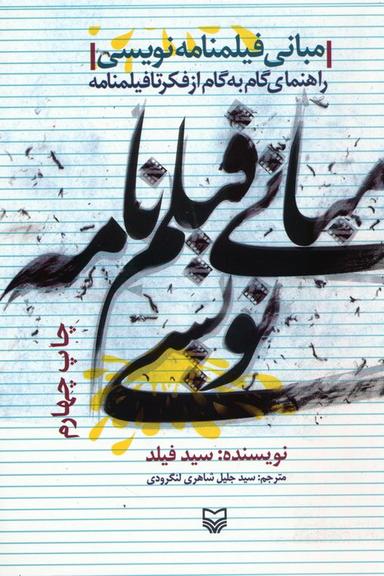 مبانی فیلمنامه نویسی
راهنمای گام به گام از فکر تا فیلمنامه
مبانی فیلم نامه
نویسی
چاپ چهارم
نویسنده: سید فیلد
مترجم: سید جلیل شاهری لنگرودی